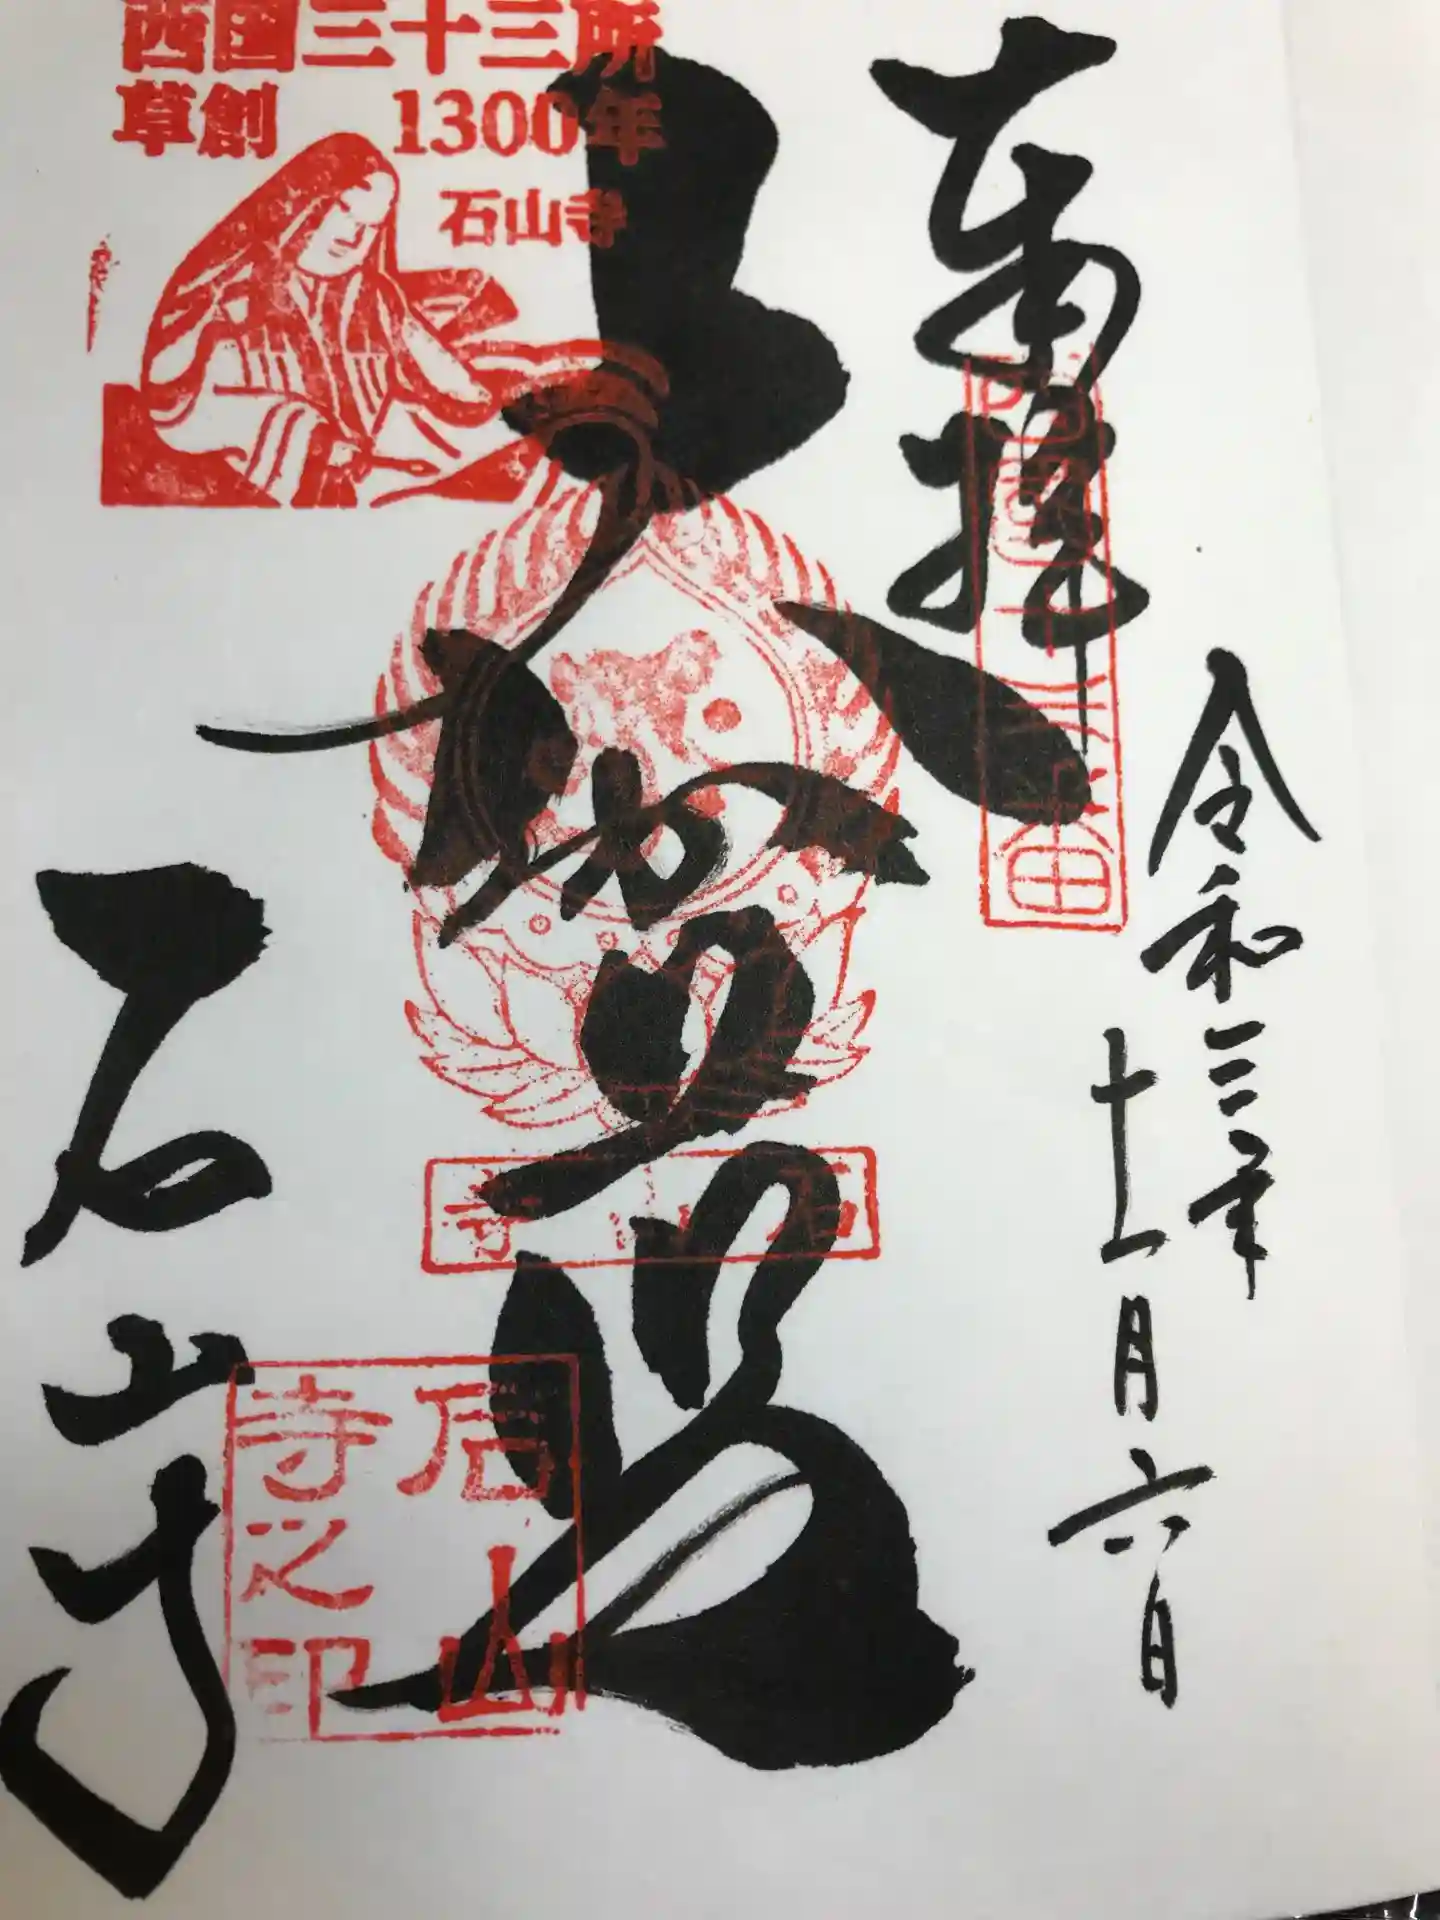 西国三十三所
草創 1300年
石山寺
奉拝
令和三年
十一月六日
大伽藍
石山寺
石山寺
石山寺之印